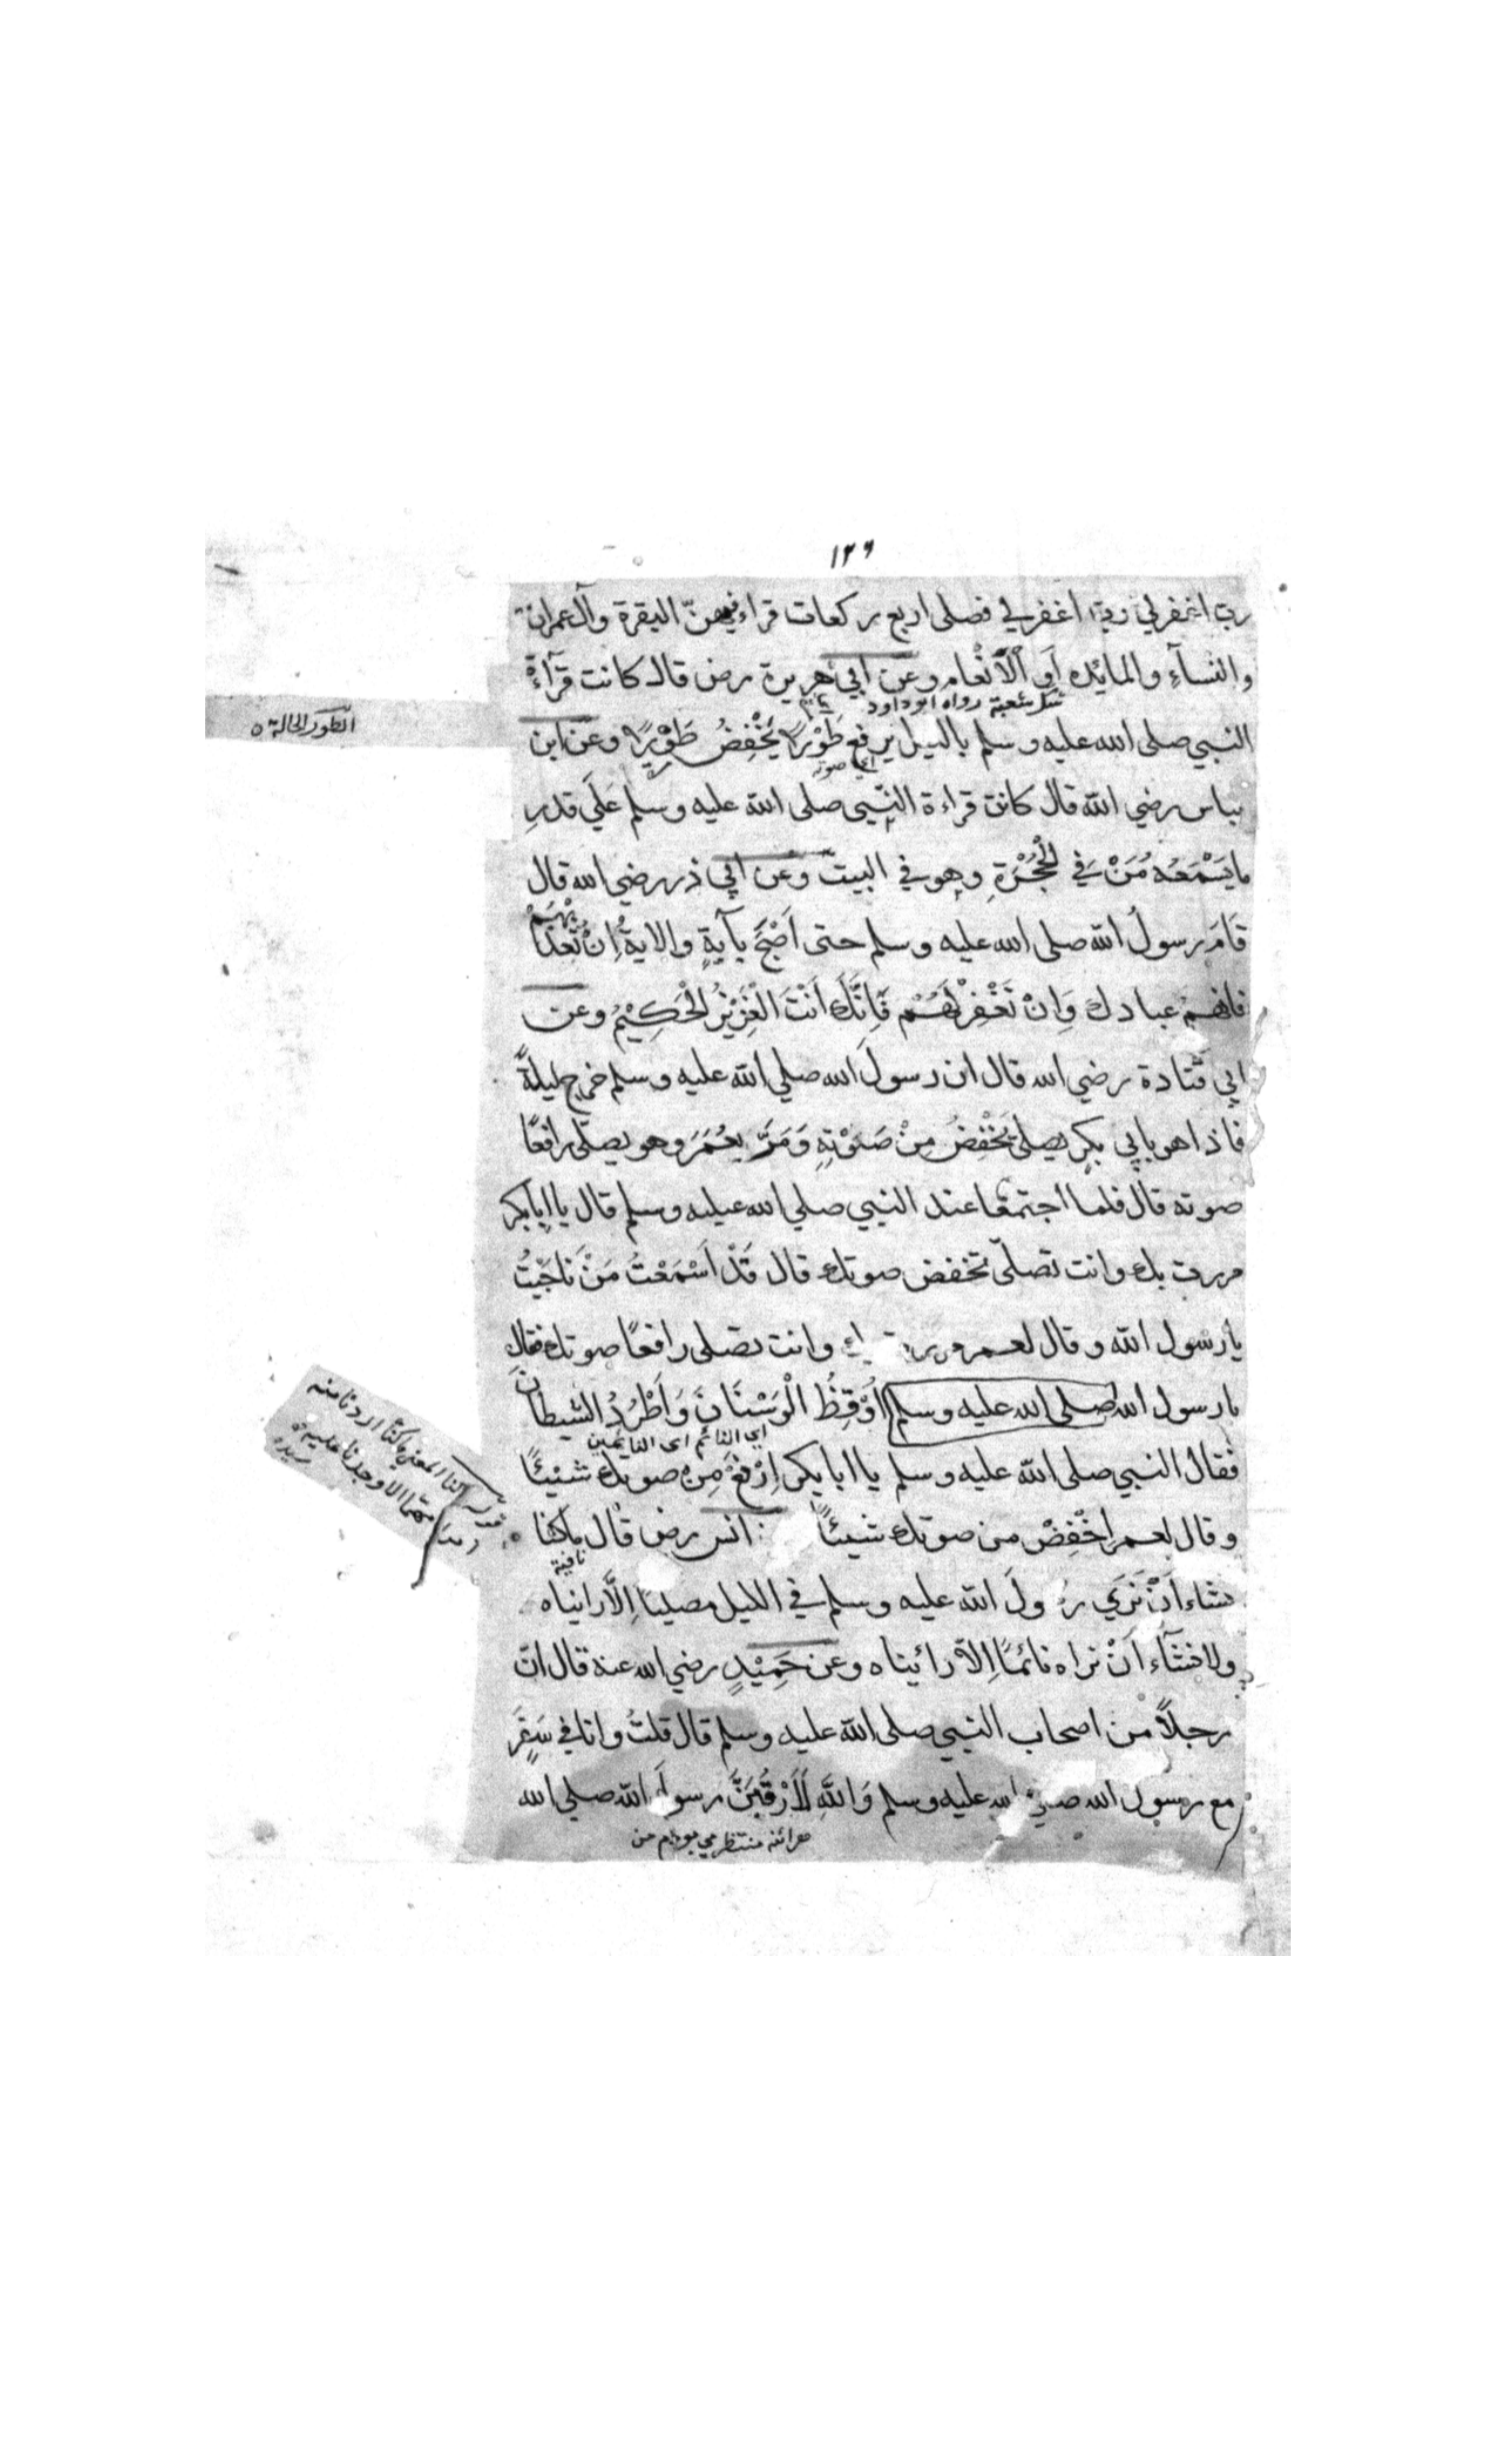 ١٢٦
رب اغفرلي رب اغفرلي فصلى اربع ركعات قراء فيهنّ البقرة وآل عمران
والنسآءِ والمائده اَوِ اْلَانْعام وعن ابي هريرة رض قال كانت قرآءةُ
شك شعبة رواه ابو داود
النبي صلى الله عليه وسلم بالليل يرفع طَوْرًا يَخْفِضُ طَوْرًا وعن ابن
اي صوته
الطور الحالة
عباس رضي الله قال كانت قراءة النّبِيى صلى الله عليه وسلم عَلَي قدرِ
ما يَسْمَعُه مَنْ في الْحُجْرَةِ وهو في البيت وعن ابي ذر رضي الله قال
قَامَ رسولُ الله صلى الله عليه وسلم حتى اَصْبَحَ بآيةٍ والايةُ اِنْ تُعَذّ
بْهُمْ
فانهم عبادك وَاِنْ تَغْفِرْ لَهُمْ فَاِنَّكَ اَنْتَ الْعَزِيْزُ الْحَكِيْمُ وعن
ابي قتادة رضي الله قال ان رسولَ الله صلي الله عليه وسلم خرج ليلةً
فاذا هو بابي بكرٍ يصلي يَخْفِضُ مِنْ صَوْتِهِ وَمَرَّ بِعُمَرَ وهو يصلّى رافعًا
صوته قال فلما اجتمعا عند النبي صلي الله عيليه وسلم قال يا ابابكر
مررت بك وانت تصلّي تخفض صوتك قال قَدْ اَسْمَعْتُ مَنْ نَاجَيْتُ
يا رسول الله وقال لعمر مررت ك وانت تصلى رافعًا صوتك فقال
يا رسول الله صلى الله عليه وسلم اُوْقِظُ الْوَسْنَانَ وَاَطْرُدُ الشيطانَ
اي النائم اى النايمين
فقال النبي صلى الله عليه وسلم يا ابا بكر اِرْفَعْ مِن صوتك شيْئًا
وقال لعمر اِخْفِضْ من صوتك شيئًا انس رض قال ماكنا
نافية
المعنى ماكنّا اردنا منه
الا وجدنا عليه
نشاء اَنْ نَرَي ر ولَ الله عليه وسلم في الليل مصليًا اِلَّا رايناه
ولا نشآء اَنْ نراه نائمًا اِلّا رائيناه وعن حَمِيْدٍ رضي الله عنه قال ان
رجلاً من اصحاب النبيي صلى الله عليه وسلم قال قلتُ وانا في سَفَرٍ
مع رسول الله صلي الله عليه وسلم وَاللهِ لَاَرْقُبَنَّ رسولَ الله صلي الله